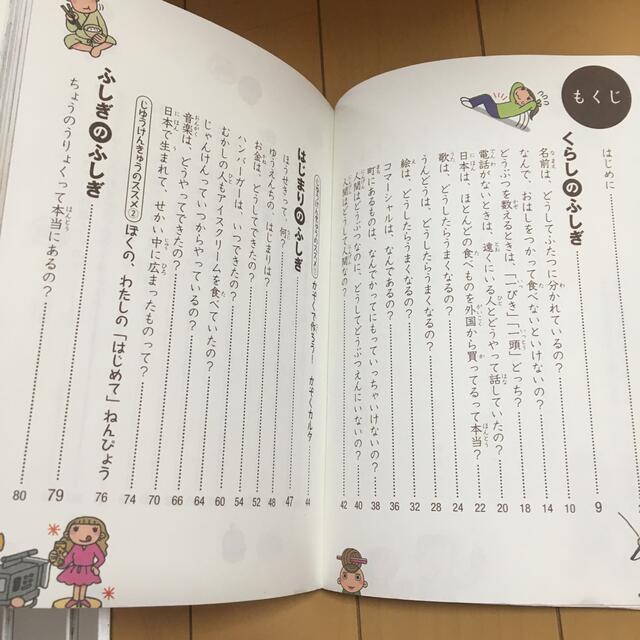 もくじ
はじめに
くらしのふしぎ 9
名前は、どうしてふたつに分かれているの? 10
なんで、おはしをつかって食べないといけないの? 14
どうぶつを数えるときは、「一ぴき」「一頭」どっち? 18
電話がないときは、遠くにいる人とどうやって話していたの? 20
日本は、ほとんどの食べものを外国から買ってるって本当? 22
歌は、どうしたらうまくなるの? 24
うんどうは、どうしたらうまくなるの? 28
絵は、どうしたらうまくなるの? 32
コマーシャルは、なんであるの? 36
町にあるものは、なんでかってにもっていっちゃいけないの? 38
人間はどうぶつなのに、どうしてどうぶつえんにいないの? 40
人間はどうして人間なの? 42
じゆうけんきゅうのススメ① かぞくで作ろう! かぞくカルタ 44
はじまりのふしぎ 47
ほうせきって、何? 48
ゆうえんちのはじまりは? 52
お金は、どうしてできたの? 54
ハンバーガーは、いつできたの? 60
むかしの人もアイスクリームを食べていたの? 64
じゃんけんっていつからやっているの? 66
音楽は、どうやってできたの? 70
日本で生まれて、せかい中に広まったものって? 74
じゆうけんきゅうのススメ② ぼくの、わたしの「はじめて」ねんぴょう 76
ふしぎのふしぎ 79
ちょうのうりょくって本当にあるの? 80